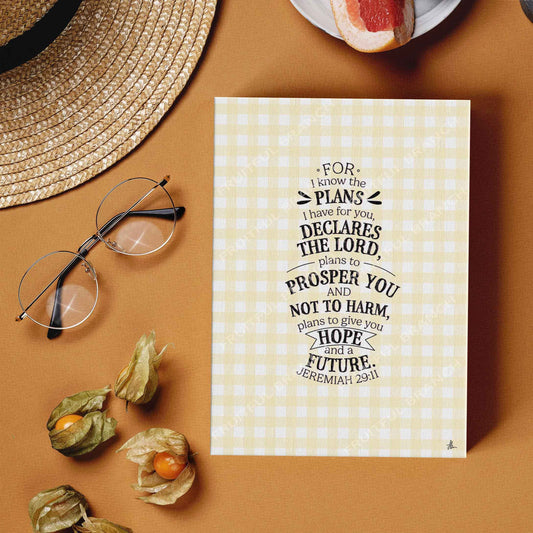 ·FOR·
I know the
PLANS
I have for you,
DECLARES
THE LORD,
plans to
PROSPER YOU
AND
NOT TO HARM,
plans to give you
HOPE
and a
FUTURE.
JEREMIAH 29:11
FRUITFUL BRANCH